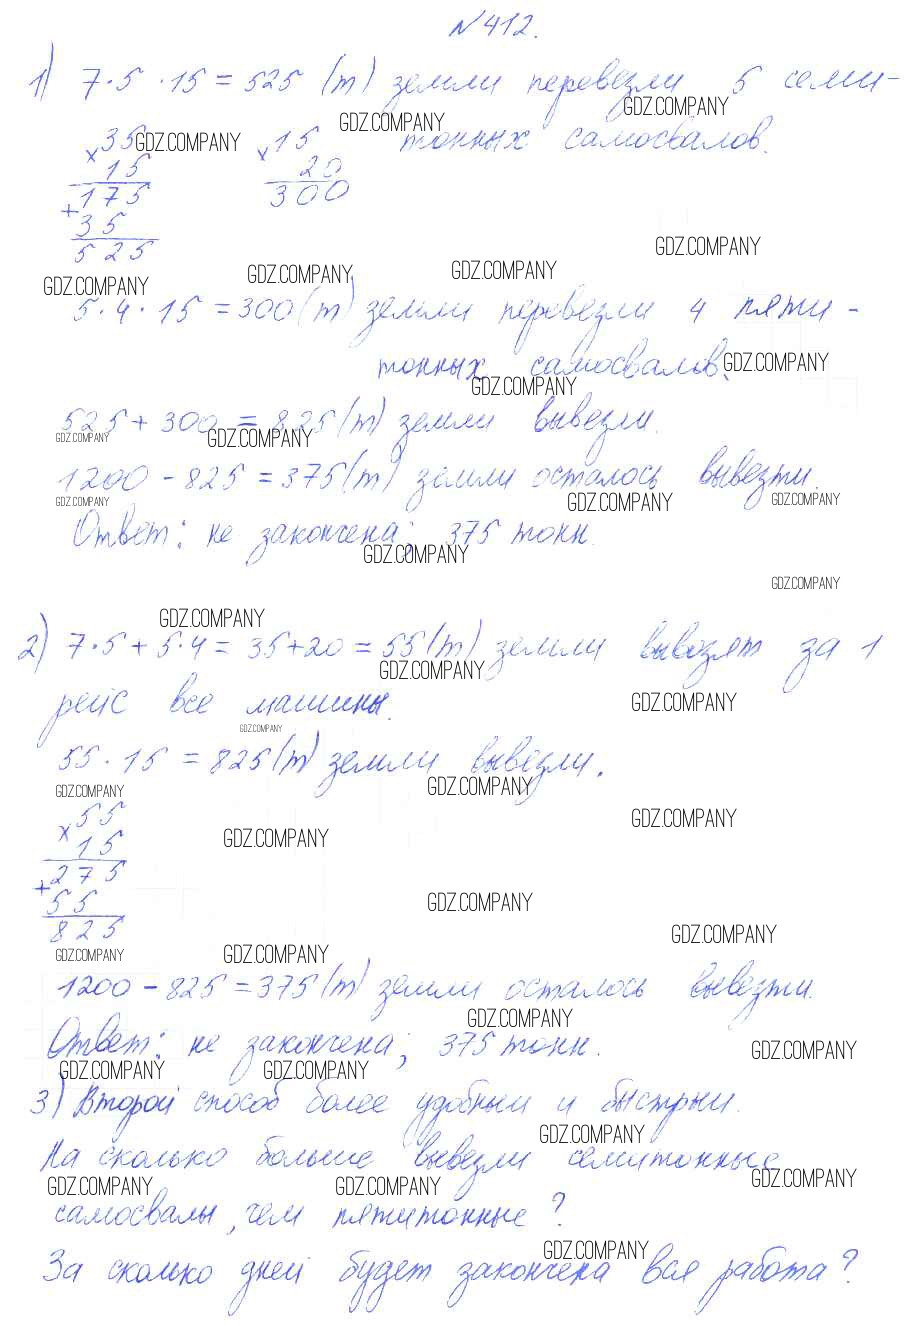 №412.
1) 7·5·15 = 525 (т) земли перевезли 5 семи-
тонных самосвалов.
35
× 15
175
+ 35
525
15
× 20
300
5·4·15 = 300 (т) земли перевезли 4 пяти-
тонных самосвалов.
525 + 300 = 825 (т) земли вывезли.
1200 - 825 = 375 (т) земли осталось вывезти.
Ответ: не закончена; 375 тонн.
2) 7·5 + 5·4 = 35+20 = 55 (т) земли вывозят за 1
рейс все машины.
55·15 = 825 (т) земли вывезли.
55
× 15
275
+ 55
825
1200 - 825 = 375 (т) земли осталось вывезти.
Ответ: не закончена; 375 тонн.
3) Второй способ более удобный и быстрый.
На сколько больше вывезли семитонные
самосвалы, чем пятитонные?
За сколько дней будет закончена вся работа?
GDZ.COMPANY